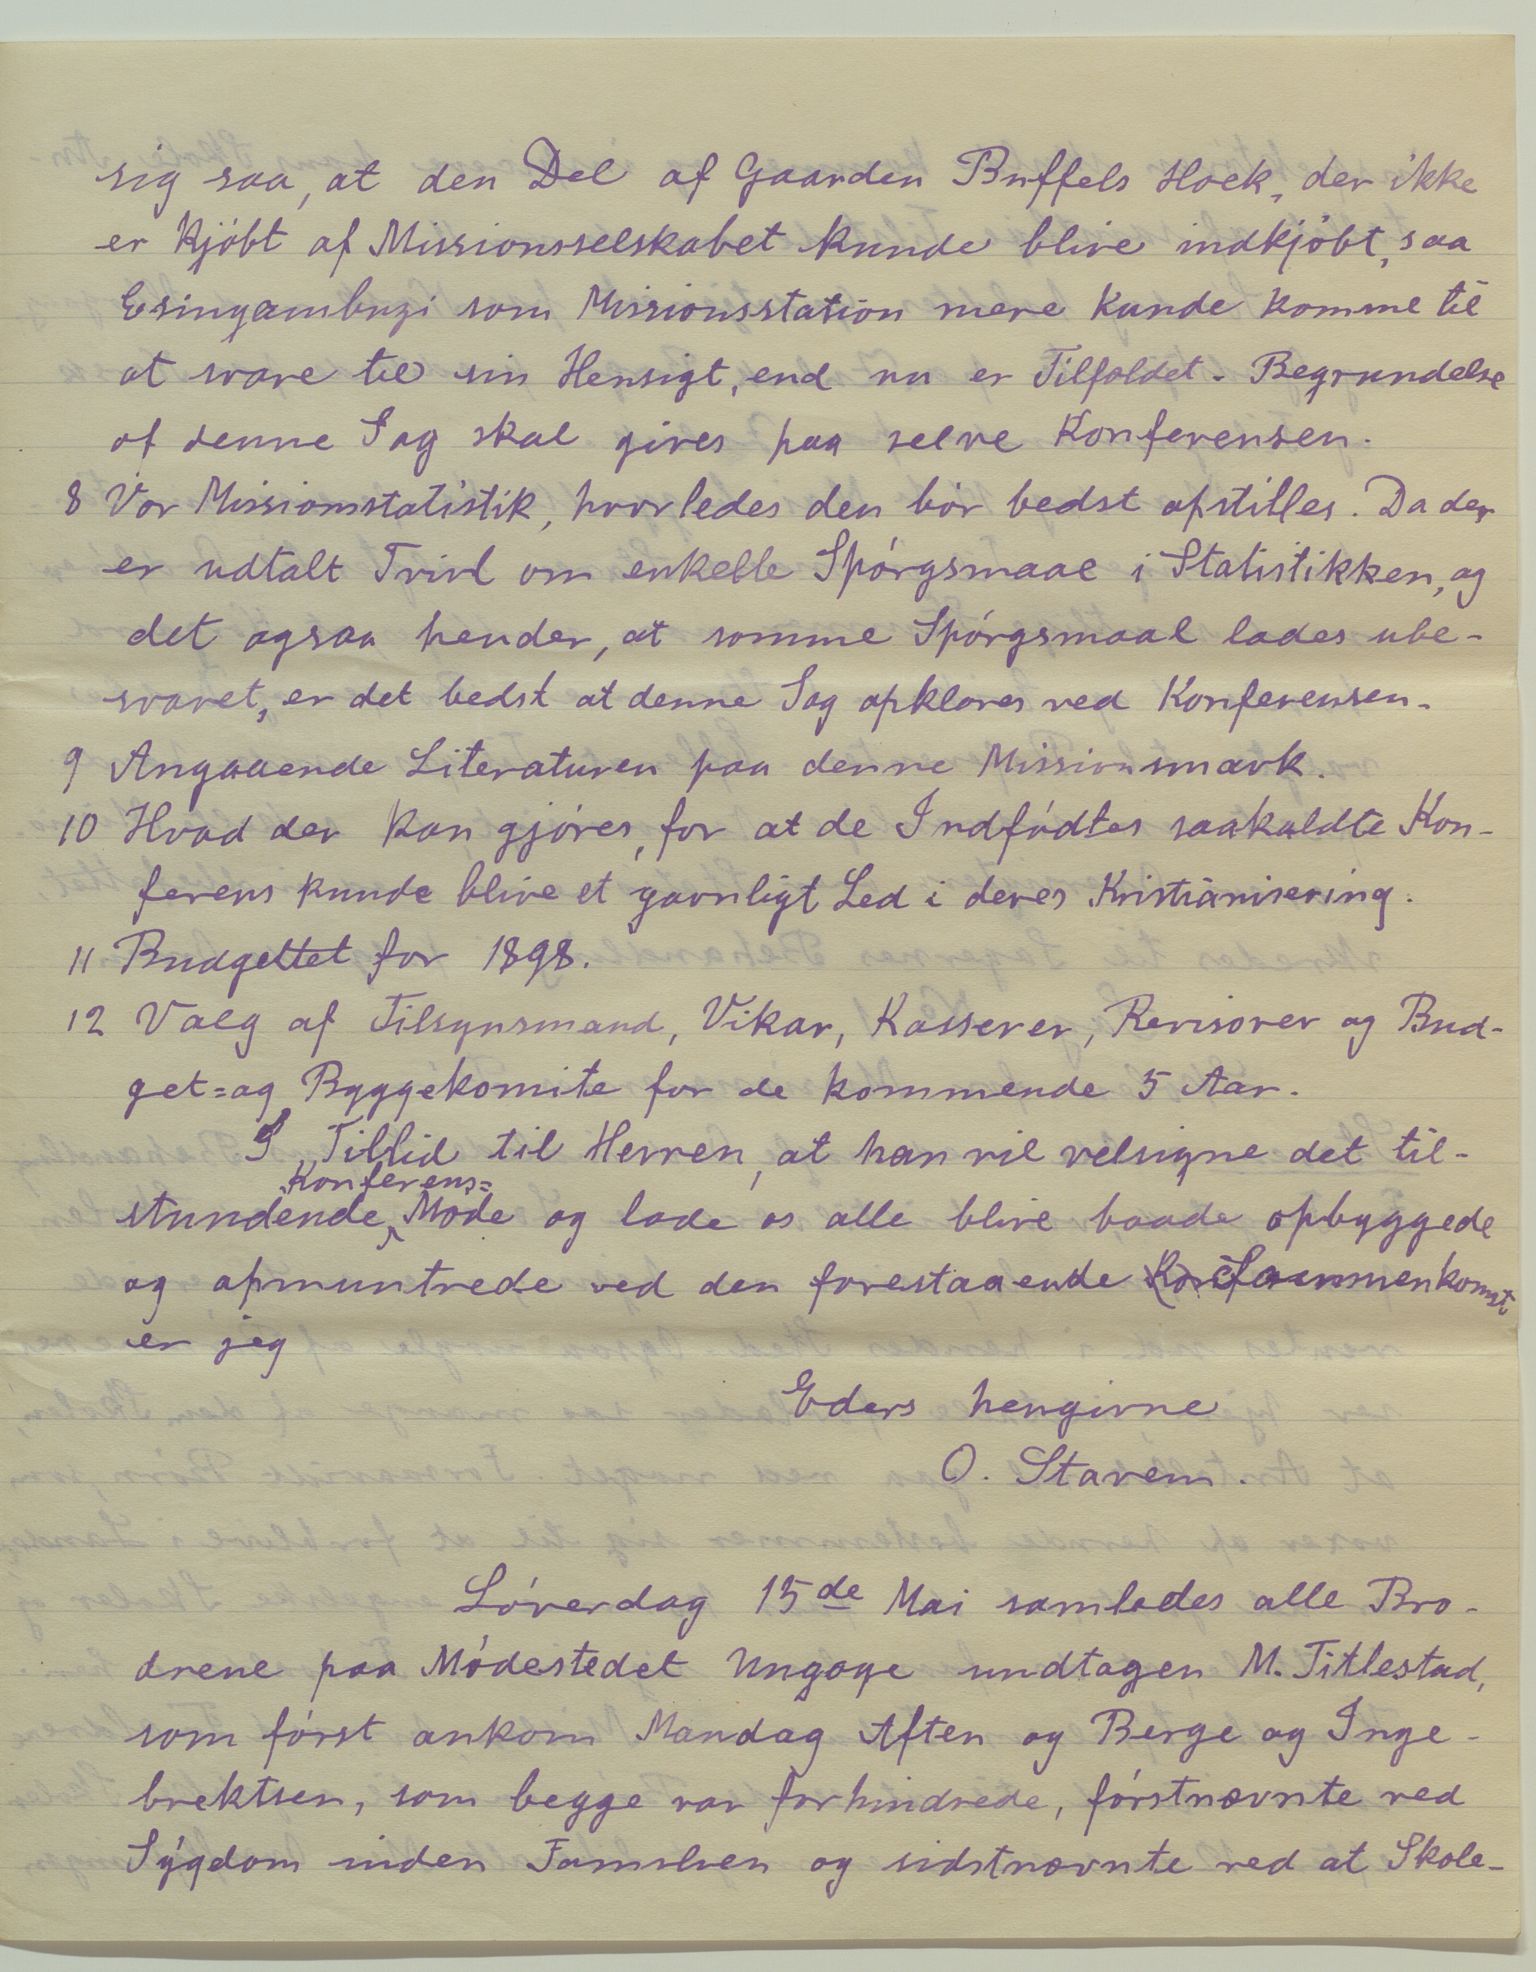 sig saa, at den Del af Gaarden Buffels Hoek, der ikke
er kjöbt af Missionsselskabet kunde blive indkjöbt, saa
Esingambuzi som Missionsstation mere kunde komme til
at svare til sin Hensigt, end nu er Tilfaldet. Begrundelse
af denne Sag skal gives paa selve Konferensen.
8 Vor Missionsstatistik, hvorledes den bör bedst opstilles. Da der
er udtalt Tvivl om enkelte Spórgsmaal i Statistikken, og
det ogsaa hender, at somme Spórgsmaal lades ube-
svaret, er det bedst at denne Sag opklares ved Konferensen.
9 Angaaende Literaturen paa denne Missionsmark.
10 Hvad der kan gjóres, for at de Indfódtes saakaldte Kon-
ferens kunde blive et gavnligt Led i deres Kristianisering.
11 Budgettet for 1898.
12 Valg af Tilsynsmand, Vikar, Kasserer, Revisorer og Bud-
get= og Byggekomite for de kommende 5 Aar.
I Tillid til Herren, at han vil velsigne det til-
Konferens=
stundende Móde og lade os alle blive baade opbyggede
og opmuntrede ved den forestaaende Sammenkomst
er jeg
Eders hengivne
O. Stavem.
Lóverdag 15de Mai samlades alle Bró-
drene paa Módestedet Ungoye undtagen M. Titlestad,
som fórst ankom Mandag Aften og Berge og Inge-
brektsen, som begge var forhindrede, fórstnævnte ved
Sýgdom inden Familien og sidstnævnte ved at Skole-